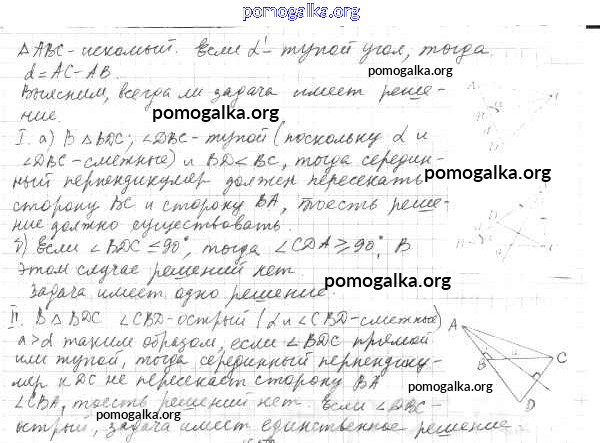 pomogalka.org
△ ABC - искомый. Если α' - тупой угол, тогда
d = AC - AB.
pomogalka.org
Выясним, всегда ли задача имеет реше-
ние.
pomogalka.org
I. а) В △ BDC; ∠DBC - тупой (поскольку α и
∠DBC - смежные) и BD < BC, тогда середин-
ный перпендикуляр должен пересекать
pomogalka.org
сторону BC и сторону BA, тоесть реше-
ние должно существовать.
б) Если ∠BDC ≤ 90°, тогда ∠CDA ≥ 90°; В
этом случае решений нет.
pomogalka.org
Задача имеет одно решение.
II. В △ BDC ∠CBD - острый (α и ∠CBD - смежные)
a > d таким образом, если ∠BDC прямой
или тупой, тогда серединный перпендику-
ляр к DC не пересекает сторону BA
∠CBA, тоесть решений нет. Если ∠DBC -
острый, задача имеет единственное решение.
A
B
a
C
D
pomogalka.org
pomogalka.org